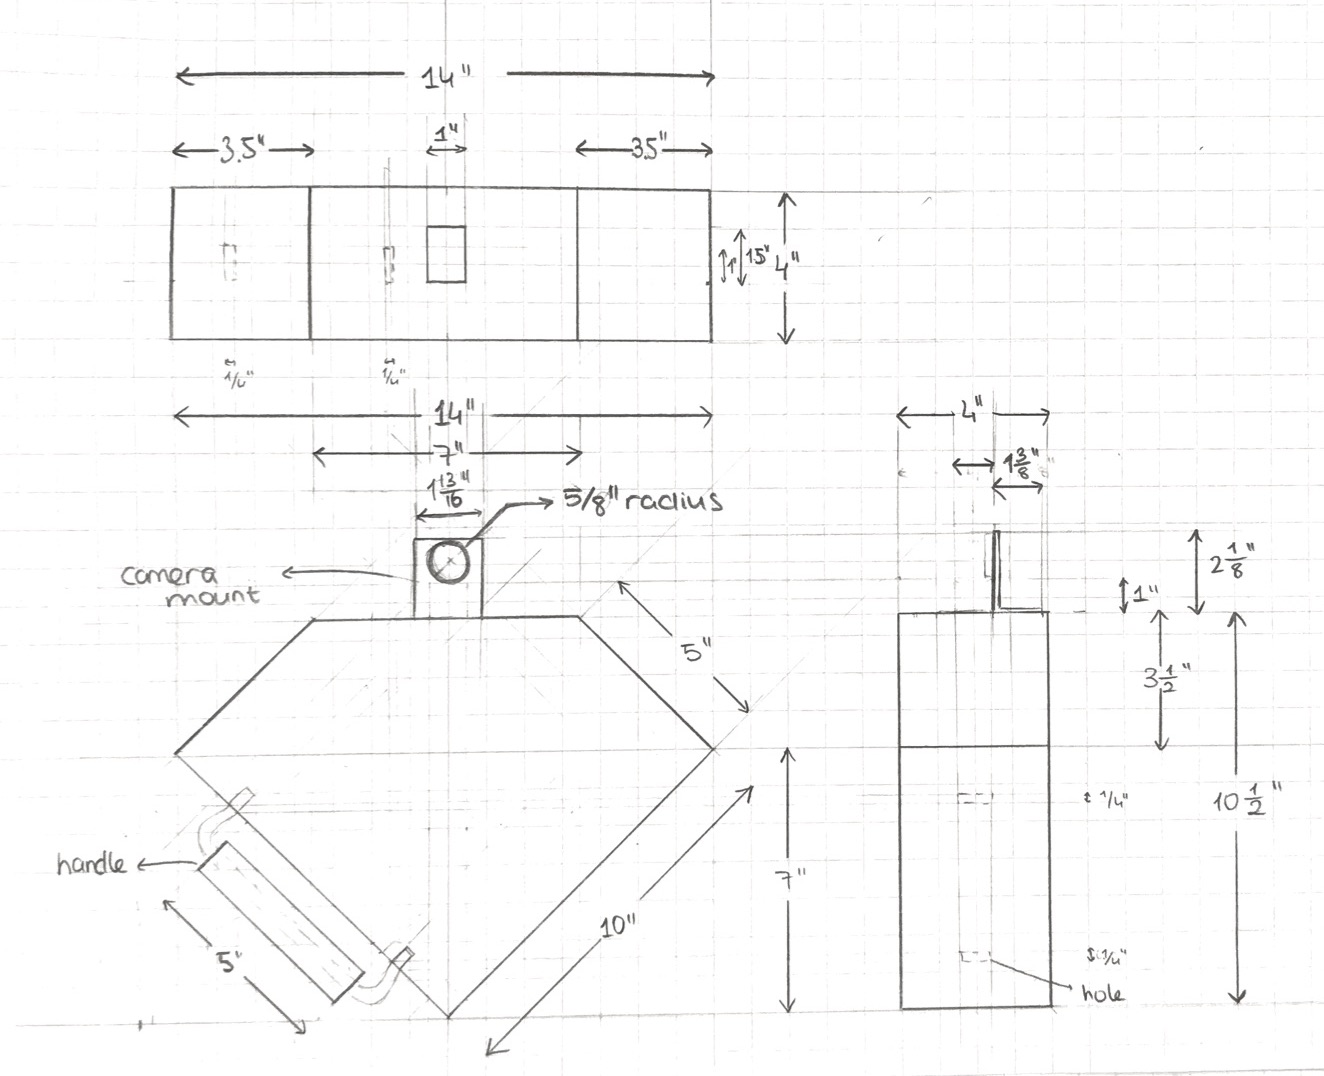 14"
3.5"
1"
3.5"
1"
1.5"
4"
1/4"
1/4"
14"
7"
1 13/16"
5/8" radius
camera
mount
5"
handle
5"
10"
7"
4"
1 3/8"
2 1/8"
1"
3 1/2"
1/4"
10 1/2"
1/4"
hole